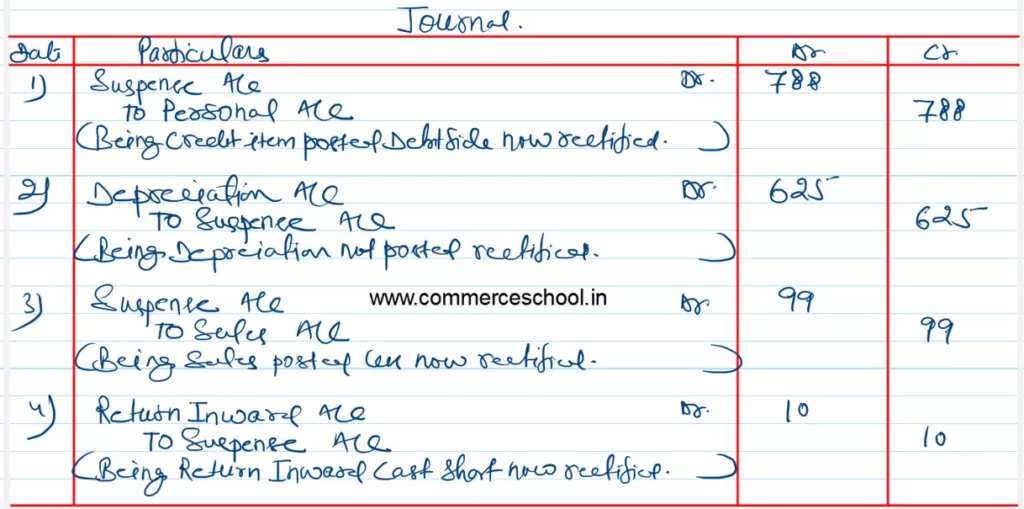 Journal.
Date Particulars Dr Cr.
1) Suspence A/c Dr. 788
To Personal A/c 788
(Being Credit item posted Debit Side now rectified.)
2) Depreciation A/c Dr. 625
To Suspence A/c 625
(Being Depreciation not posted rectified.)
3) Suspense A/c www.commerceschool.in Dr 99
To Sales A/c 99
(Being Sales posted less now rectified.)
4) Return Inward A/c Dr. 10
To Suspense A/c 10
(Being Return Inward Cast Short now rectified.)